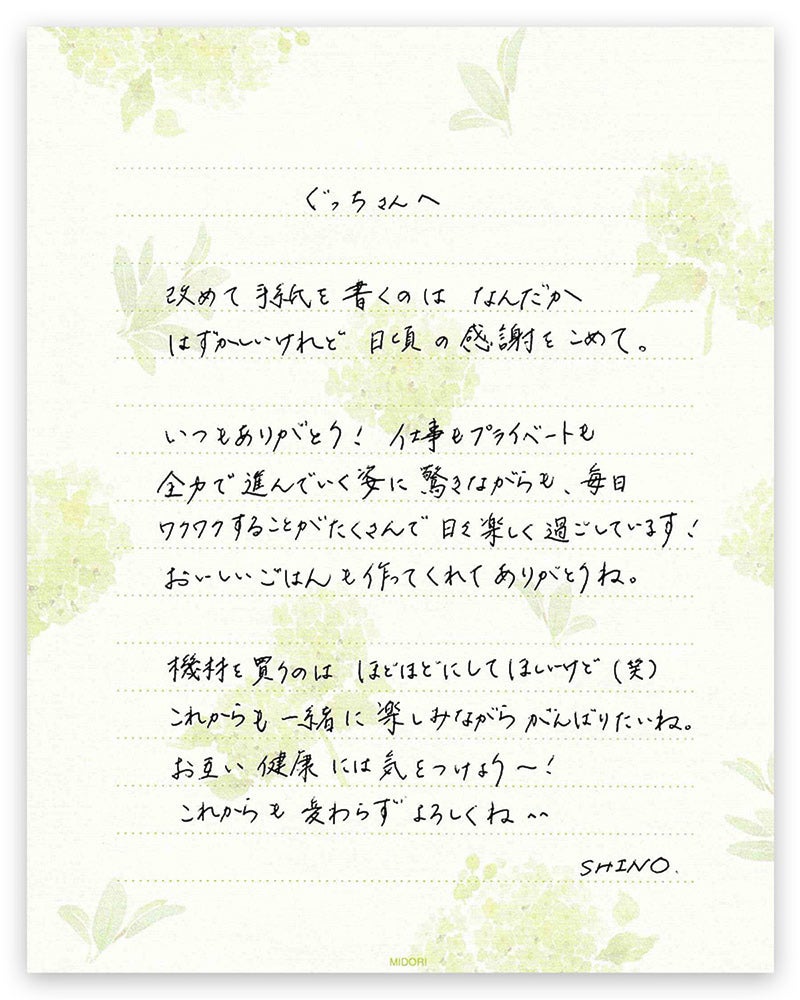 ぐっちゃんへ
改めて 手紙を 書くのは なんだか
はずかしいけれど 日頃の 感謝を こめて。
いつもありがとう! 仕事もプライベートも
全力で 進んでいく姿に 驚きながらも、毎日
ワクワクすることがたくさんで 日々楽しく 過ごしています!
おいしいごはんも 作ってくれて ありがとうね。
機材を 買うのは ほどほどにしてほしいけど (笑)
これからも 一緒に 楽しみながら がんばりたいね。
お互い 健康 には 気をつけよう〜!
これからも 変わらず よろしくね ^^
SHINO.
MIDORI